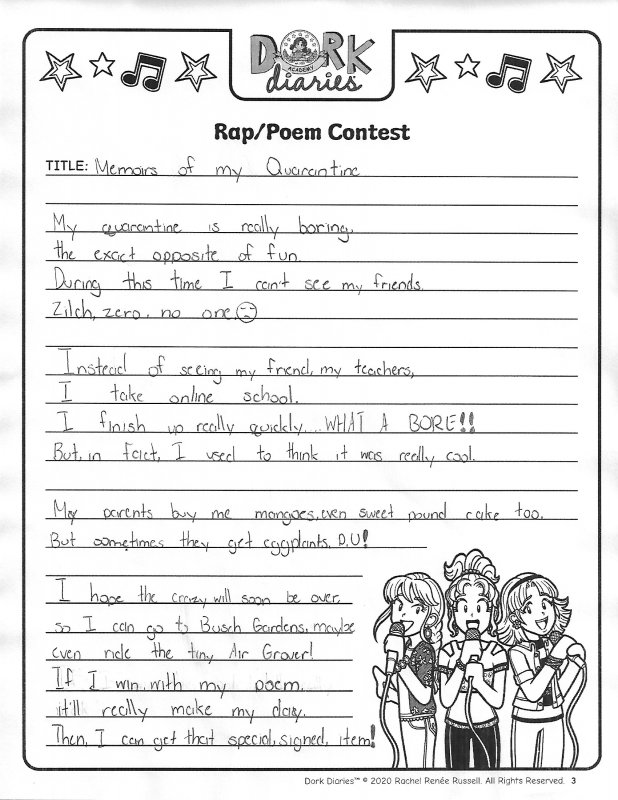 DORK
ACADEMY
diaries
Rap/Poem Contest
TITLE: Memoirs of my Quarantine
My quarantine is really boring,
the exact opposite of fun.
During this time I can't see my friends.
Zilch, zero, no one.
Instead of seeing my friend, my teachers,
I take online school.
I finish up really quickly...WHAT A BORE!!
But, in fact, I used to think it was really cool.
My parents buy me mangoes, even sweet pound cake too.
But sometimes they get eggplants. P.U!
I hope the crazy will soon be over,
so I can go to Busch Gardens, maybe
even ride the tiny Air Grover!
If I win with my poem,
it'll really make my day.
Then, I can get that special, signed, item!
Dork Diaries™ © 2020 Rachel Renée Russell. All Rights Reserved. 3